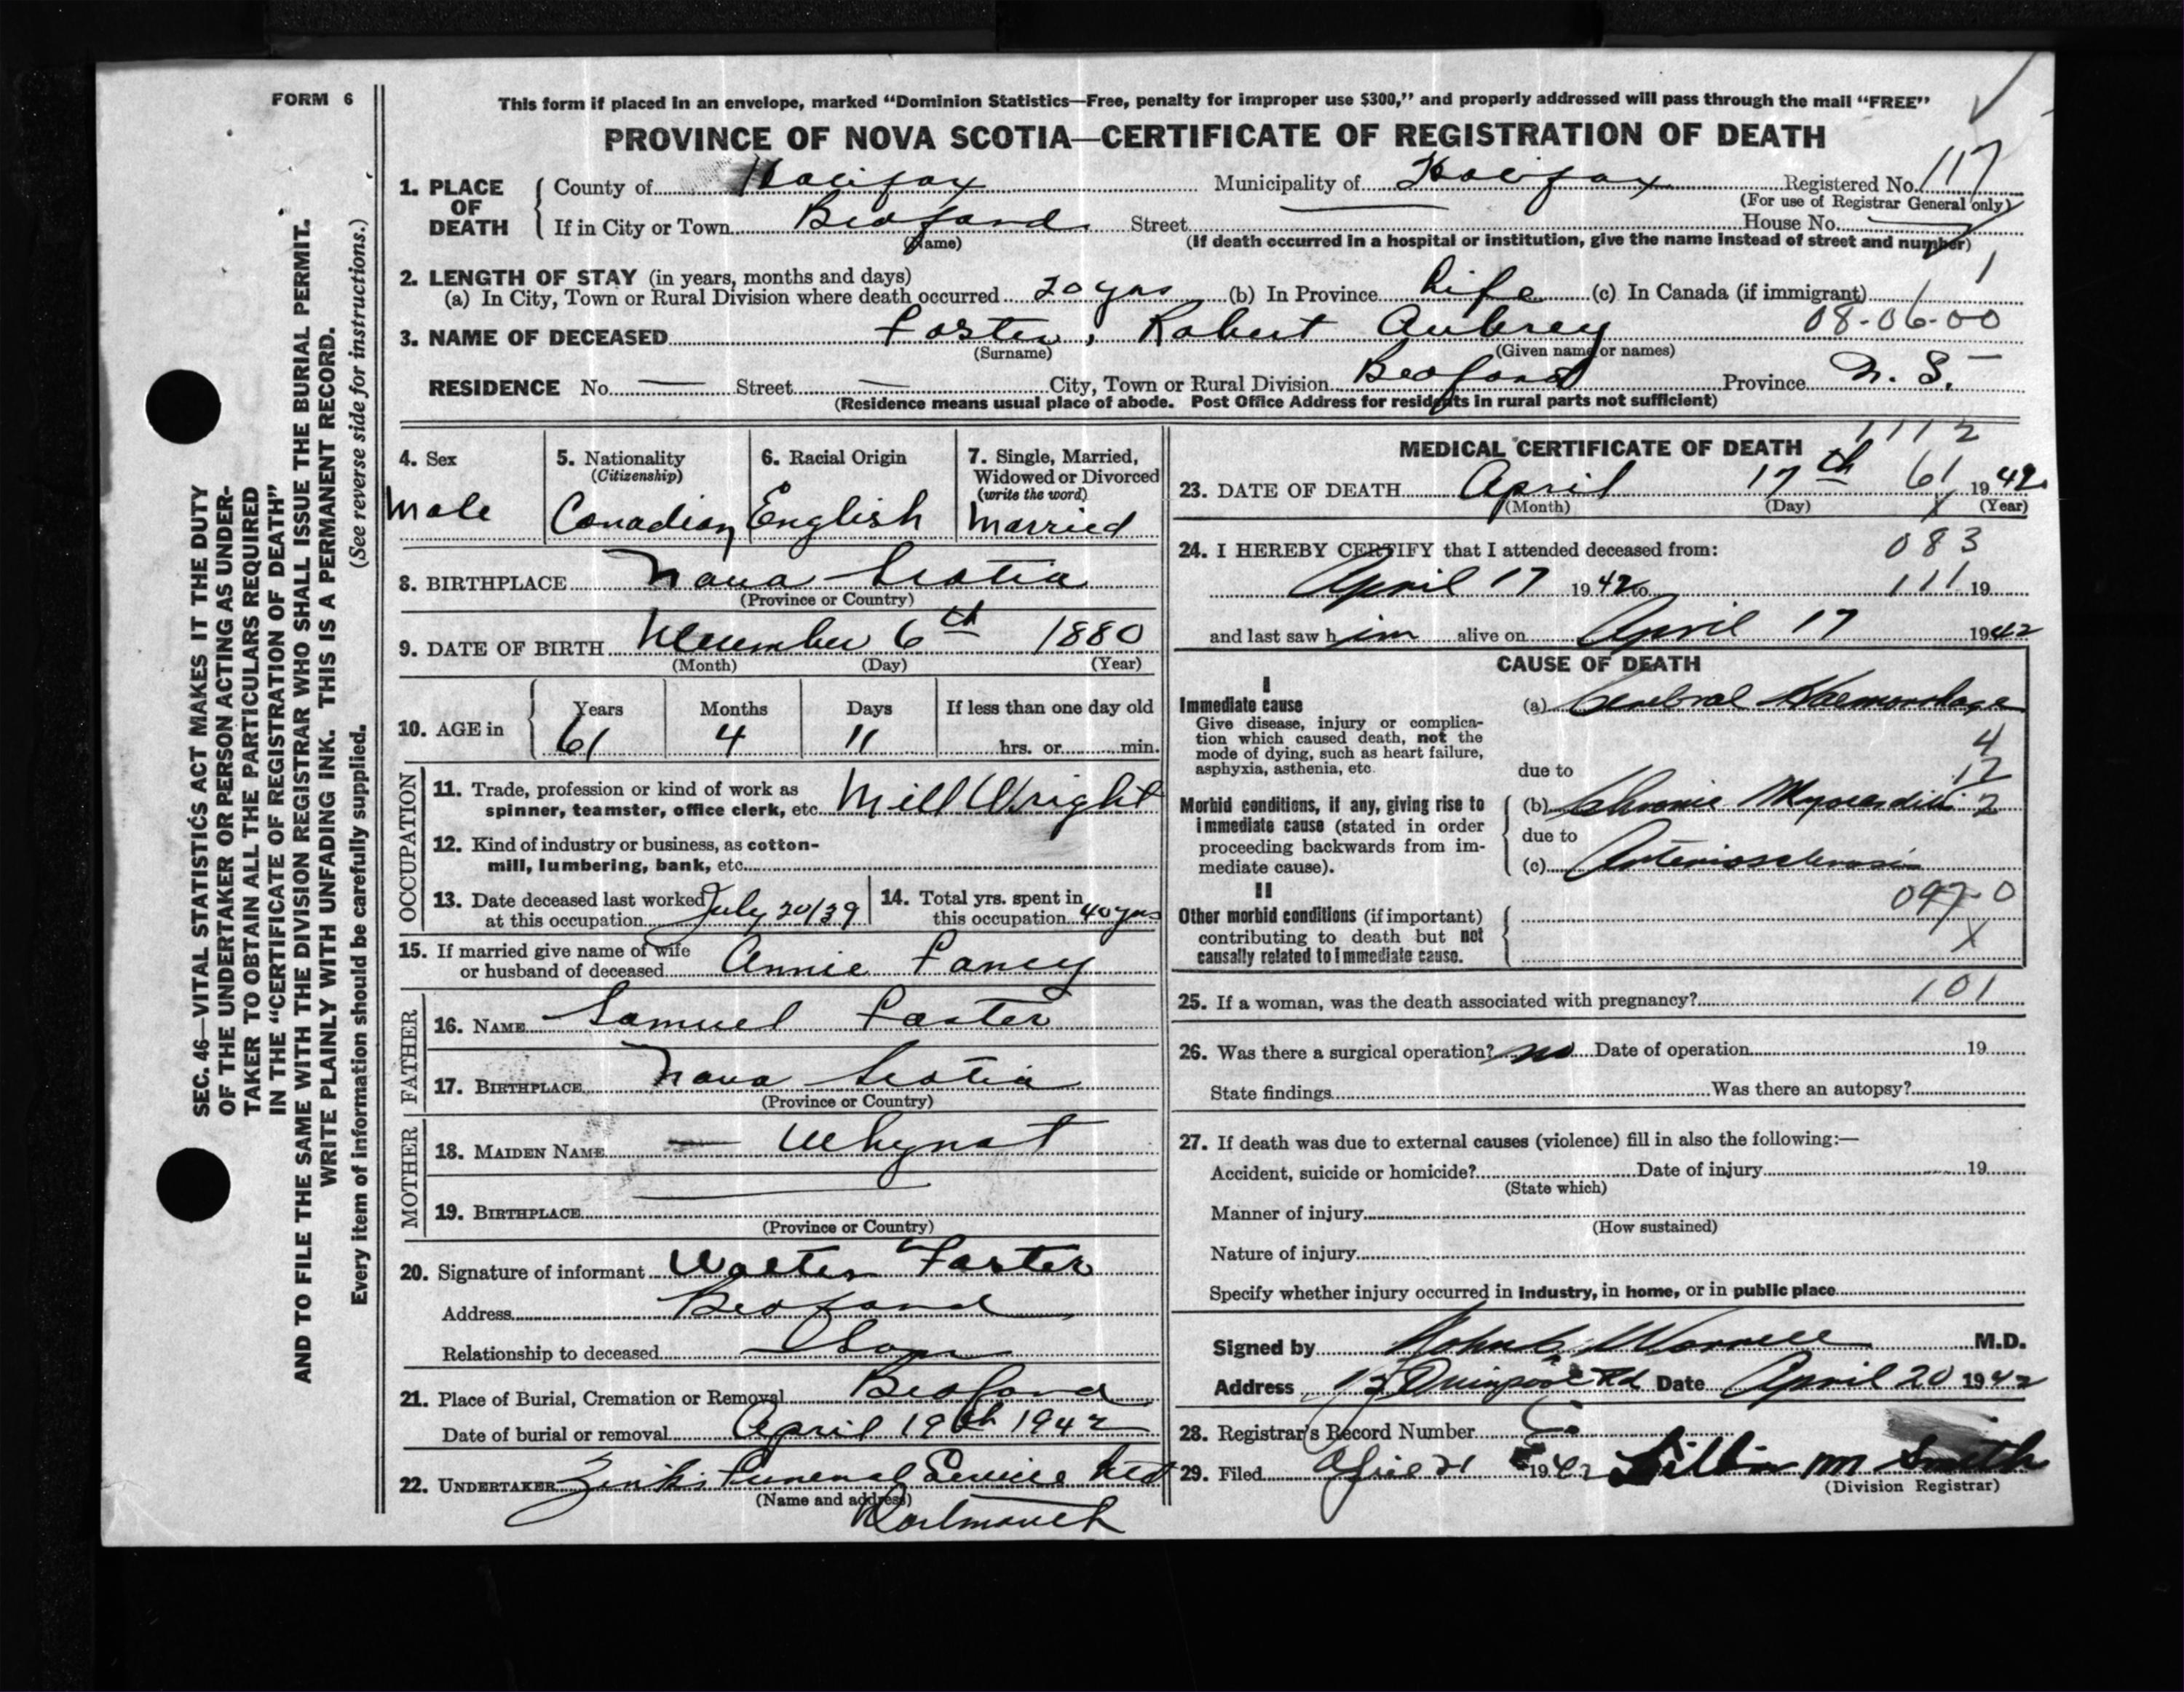 FORM 6
This form if placed in an envelope, marked “Dominion Statistics—Free, penalty for improper use $300,” and properly addressed will pass through the mail “FREE”
PROVINCE OF NOVA SCOTIA—CERTIFICATE OF REGISTRATION OF DEATH
1. PLACE OF DEATH County of Halifax Municipality of Halifax Registered No. 117
(For use of Registrar General only)
If in City or Town Bedford Street House No.
(Name) (If death occurred in a hospital or institution, give the name instead of street and number)
2. LENGTH OF STAY (in years, months and days) 1
(a) In City, Town or Rural Division where death occurred 20 yrs (b) In Province Life (c) In Canada (if immigrant)
3. NAME OF DECEASED Foster, Robert Aubrey 08-06-00
(Surname) (Given name or names)
RESIDENCE No. — Street — City, Town or Rural Division Bedford Province N. S.
(Residence means usual place of abode. Post Office Address for residents in rural parts not sufficient)
4. Sex
Male
5. Nationality
(Citizenship)
Canadian
6. Racial Origin
English
7. Single, Married,
Widowed or Divorced
(write the word)
Married
8. BIRTHPLACE Nova Scotia
(Province or Country)
9. DATE OF BIRTH December 6th 1880
(Month) (Day) (Year)
10. AGE in Years Months Days If less than one day old
61 4 11 hrs. or min.
OCCUPATION
11. Trade, profession or kind of work as
spinner, teamster, office clerk, etc. Mill Wright
12. Kind of industry or business, as cotton-
mill, lumbering, bank, etc.
13. Date deceased last worked
at this occupation July 20/39
14. Total yrs. spent in
this occupation 40 yrs
15. If married give name of wife
or husband of deceased Annie Fancy
FATHER
16. NAME Samuel Foster
17. BIRTHPLACE Nova Scotia
(Province or Country)
MOTHER
18. MAIDEN NAME — Whynot
19. BIRTHPLACE
(Province or Country)
20. Signature of informant Walter Foster
Address Bedford
Relationship to deceased Son
21. Place of Burial, Cremation or Removal Bedford
Date of burial or removal April 19th 1942
22. UNDERTAKER Zink's Funeral Service Ltd
(Name and address)
Dartmouth
MEDICAL CERTIFICATE OF DEATH 1112
23. DATE OF DEATH April 17th 61 1942
(Month) (Day) X (Year)
24. I HEREBY CERTIFY that I attended deceased from: 083
April 17 1942 to 111 19
and last saw him alive on April 17 1942
CAUSE OF DEATH
I
Immediate cause (a) Cerebral Haemorrhage
Give disease, injury or complica-
tion which caused death, not the
mode of dying, such as heart failure,
asphyxia, asthenia, etc.
4
due to 12
Morbid conditions, if any, giving rise to (b) Chronic Myocarditis 2
immediate cause (stated in order due to
proceeding backwards from im-
mediate cause). (c) Arteriosclerosis
II
0970
Other morbid conditions (if important)
contributing to death but not X
causally related to immediate cause.
25. If a woman, was the death associated with pregnancy? 101
26. Was there a surgical operation? no Date of operation 19
State findings Was there an autopsy?
27. If death was due to external causes (violence) fill in also the following:—
Accident, suicide or homicide? Date of injury 19
(State which)
Manner of injury
(How sustained)
Nature of injury
Specify whether injury occurred in industry, in home, or in public place
Signed by M.D.
Address Quinpool Rd Date April 20 1942
28. Registrar's Record Number
29. Filed April 21 1942 Lillian M Smith
(Division Registrar)
SEC. 46—VITAL STATISTICS ACT MAKES IT THE DUTY
OF THE UNDERTAKER OR PERSON ACTING AS UNDER-
TAKER TO OBTAIN ALL THE PARTICULARS REQUIRED
IN THE “CERTIFICATE OF REGISTRATION OF DEATH”
AND TO FILE THE SAME WITH THE DIVISION REGISTRAR WHO SHALL ISSUE THE BURIAL PERMIT.
WRITE PLAINLY WITH UNFADING INK. THIS IS A PERMANENT RECORD.
Every item of information should be carefully supplied. (See reverse side for instructions.)